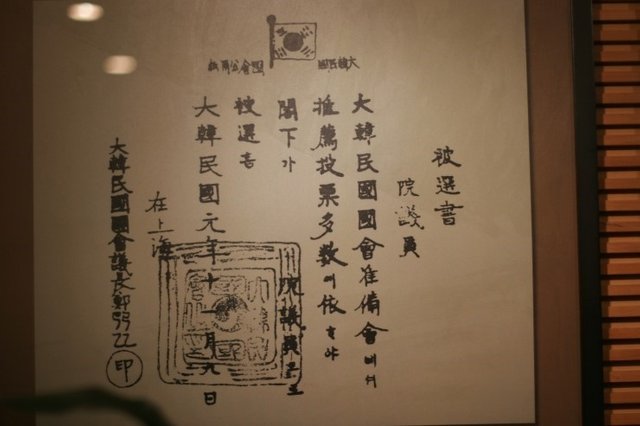 大韓民國 國會公用紙
被選書
院議員
大韓民國國會准備會에서
推薦投票多數에依하야
閣下가 院議員으로
被選홈
大韓民國元年十一月九日
在上海
大韓民國國會議長鄭 印